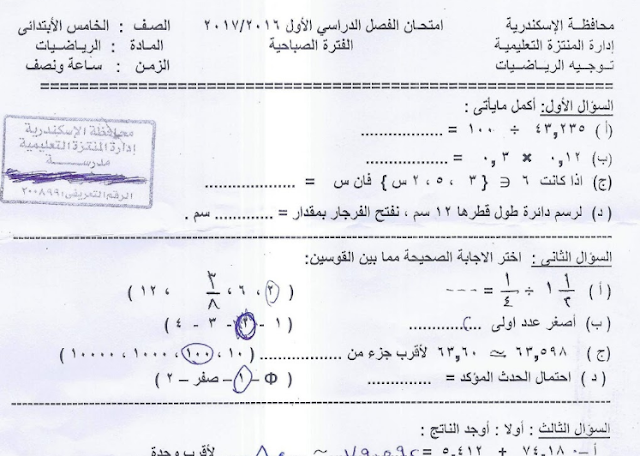 محافظة الإسكندرية امتحان الفصل الدراسي الأول ٢٠١٧/٢٠١٦ الصف : الخامس الأبتدائى
إدارة المنتزة التعليمية الفترة الصباحية المادة : الرياضيات
توجيه الرياضيات الزمن : ساعة ونصف
السؤال الأول: أكمل مايأتى :
( أ ) ٤٣,٢٣٥ ÷ ١٠٠ = ..................
(ب) ٠,١٢ × ٠,٣ = ..................
(ج) اذا كانت ٦ ∈ { ٣ ، ٥ ، ٢ س } فان س = ....................
( د ) لرسم دائرة طول قطرها ١٢ سم ، نفتح الفرجار بمقدار = ............ سم .
محافظة الإسكندرية
إدارة المنتزة التعليمية
مدرسة
الرقم التعريفى: ٢٠٠٨٩٩
السؤال الثانى : اختر الاجابة الصحيحة مما بين القوسين:
( أ ) ١ ١/٢ ÷ ١/٤ = --- ( ٢ ، ٦ ، ٣/٨ ، ١٢ )
(ب) أصغر عدد اولى ................ ( ١ - ٢ - ٣ - ٤ )
(ج) ٦٣,٥٩٨ ≈ ٦٣,٦٠ لأقرب جزء من .................. ( ١٠ ، ١٠٠ ، ١٠٠٠ ، ١٠٠٠٠ )
( د ) احتمال الحدث المؤكد = .............. ( Φ – ١ – صفر – ٢ )
السؤال الثالث : أولا : أوجد الناتج :
أ – ٧٤,١٨٠ + ٥,٤١٢ = ٧٩,٥٩٢ ≈ ٨٠ لأقرب وحدة